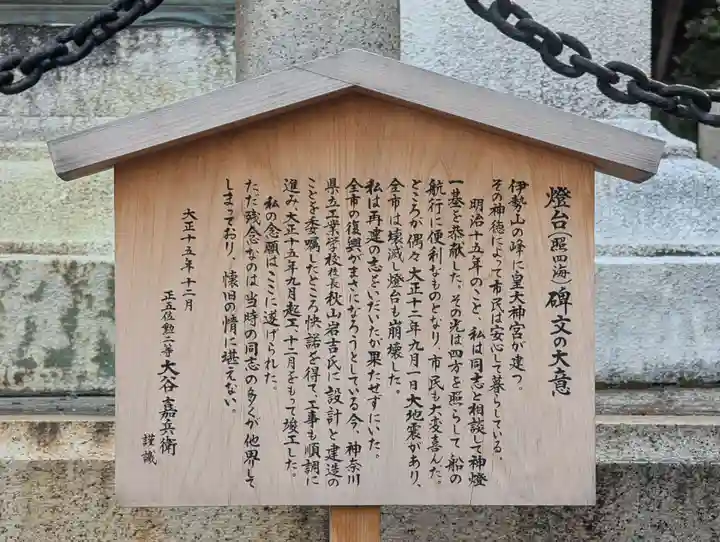 燈台（照四海）碑文の大意
伊勢山の峰に皇大神宮が建つ。
その神徳によって市民は安心して暮らしている。
明治十五年のこと、私は同志と相談して神燈
一基を恭献した。その光は四方を照らして船の
航行に便利なものとなり、市民も大変喜んだ。
ところが偶々大正十二年九月一日大地震があり、
全市は壊滅し燈台も崩壊した。
私は再建の志をいだいたが果たせずにいた。
全市の復興がまさになろうとしている今、神奈川
県立工業学校校長秋山岩吉氏に設計と建造の
ことを委嘱したところ快諾を得て、工事も順調に
進み、大正十五年九月起工、十二月をもって竣工した。
私の念願はここに遂げられた。
ただ残念なのは当時の同志の多くが他界して
しまっており、懐旧の情に堪えない。
大正十五年十二月
正五位勲二等 大谷嘉兵衛 謹識